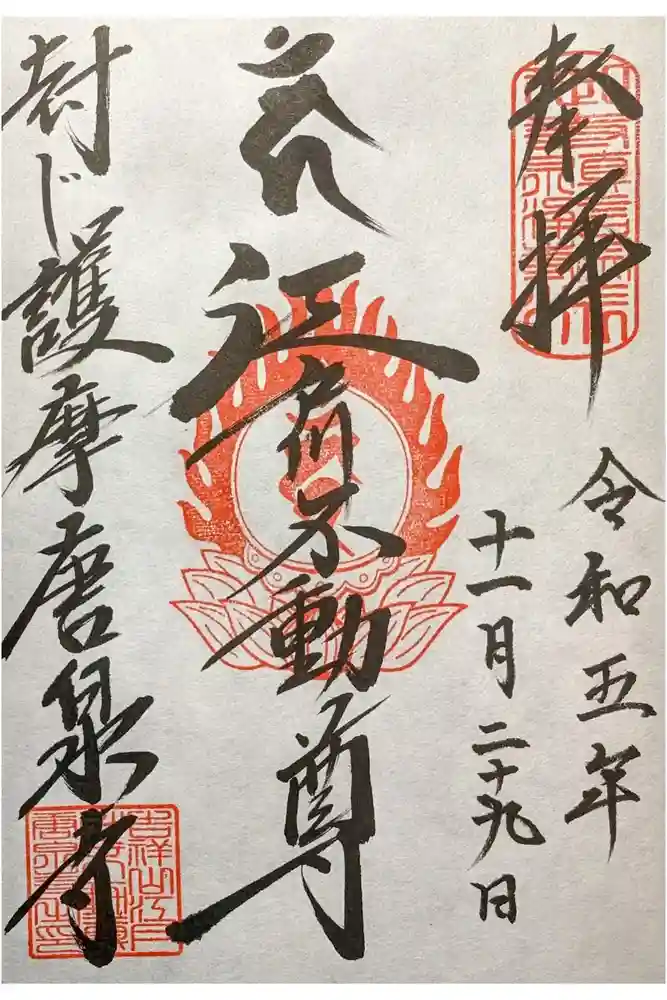 奉拝
令和五年
十一月二十九日
江戸川不動尊
封じ護摩唐泉寺